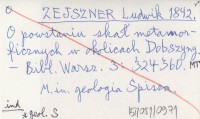 ZEJSZNER Ludwik 1842.
O powstaniu skał metamor-
ficznych w okolicach Dobszyny.
– Bibl. Warsz. S. 324-360.
M. in. geologia Spisza.
ind
geol. S